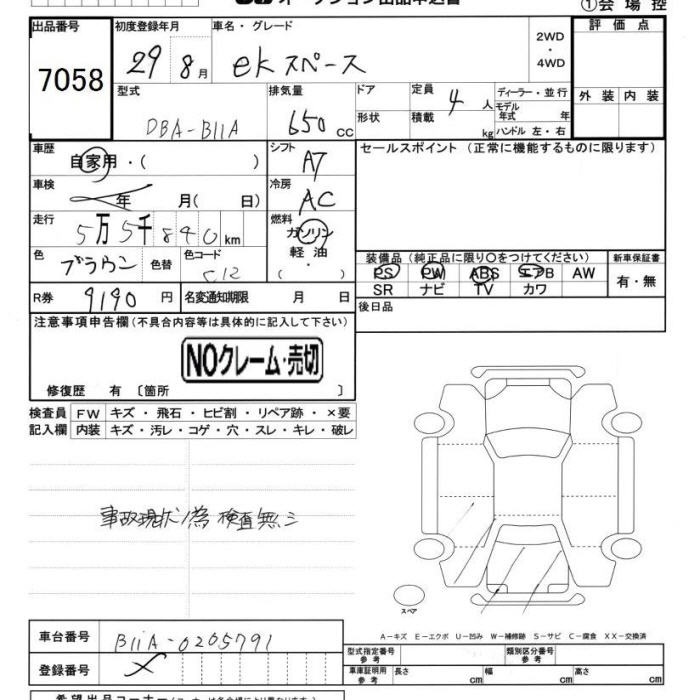 ①会場控
出品番号 初度登録年月 車名・グレード 2WD 評価点
7058 29 8月 ekスペース ・ 4WD
型式 排気量 ドア 定員 4人 ディーラー・並行 外装 内装
DBA-B11A 650 CC 形状 積載 kg モデル年式 年
ハンドル 左・右
車歴 自家用・( ) シフト A7 セールスポイント (正常に機能するものに限ります)
車検 年 月( 日) 冷房 AC
走行 5万5千840km 燃料 ガソリン
軽油
( ・ )
色 ブラウン 色替 色コード C12 装備品 (純正品に限り○をつけてください) 新車保証書
PS PW ABS エアB AW 有・無
SR ナビ TV カワ
R券 9190円 名変通知期限 月 日 後日品
注意事項申告欄(不具合内容等は具体的に記入して下さい)
NOクレーム・売切
修復歴 有 〔箇所 〕
検査員 FW キズ・飛石・ヒビ割・リペア跡・×要
記入欄 内装 キズ・汚レ・コゲ・穴・スレ・キレ・破レ
事故現状ノ為 検査無シ
スペア
A-キズ E-エクボ U-凹み W-補修跡 S-サビ C-腐食 XX-交換済
車台番号 B11A-0205791 型式指定番号 参考 類別区分番号 参考
登録番号 車庫証明用 参考 長さ cm 幅 cm 高さ cm